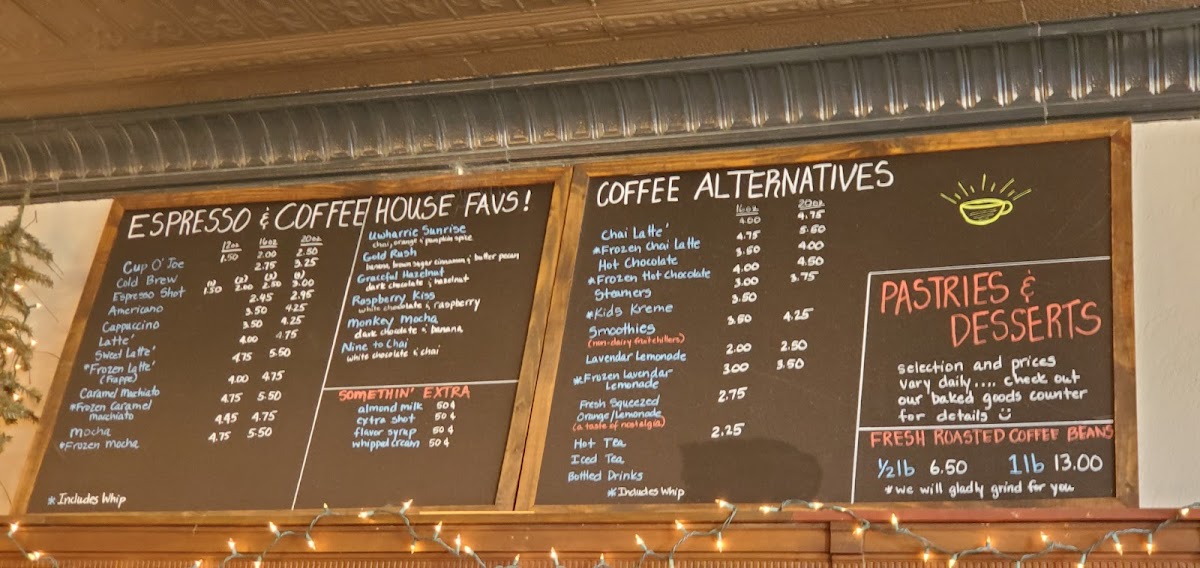 ESPRESSO & COFFEE HOUSE FAVS!
12oz 16oz 20oz
Cup O' Joe 1.50 2.00 2.50
Cold Brew 2.75 3.25
(1) (2) (3) (4)
Espresso Shot 1.50 2.00 2.50 3.00
Americano 2.45 2.95
Cappuccino 3.50 4.25
Latte' 3.50 4.25
Sweet Latte' 4.00 4.75
*Frozen Latte' 4.75 5.50
(Frappe)
Caramel Machiato 4.00 4.75
*Frozen Caramel 4.75 5.50
Macchiato
Mocha 4.45 4.75
*Frozen Mocha 4.75 5.50
* Includes Whip
Uwharrie Sunrise
chai, orange & pumpkin spice
Gold Rush
banana, brown sugar cinnamon & butter pecan
Graceful Hazelnut
dark chocolate & hazelnut
Raspberry Kiss
white chocolate & raspberry
Monkey Mocha
dark chocolate & banana
Nine to Chai
white chocolate & chai
SOMETHIN' EXTRA
almond milk 50¢
extra shot 50¢
flavor syrup 50¢
whipped cream 50¢
COFFEE ALTERNATIVES
16oz 20oz
Chai Latte' 4.00 4.75
*Frozen Chai Latte 4.75 5.50
Hot Chocolate 3.50 4.00
*Frozen Hot Chocolate 4.00 4.50
Steamers 3.00 3.75
*Kids Kreme 3.50
Smoothies 3.50 4.25
(non-dairy fruit chillers)
Lavendar Lemonade 2.00 2.50
*Frozen Lavendar 3.00 3.50
Lemonade
Fresh Squeezed 2.75
Orange/Lemonade
(a taste of nostalgia)
Hot Tea 2.25
Iced Tea
Bottled Drinks
*Includes Whip
PASTRIES &
DESSERTS
selection and prices
vary daily.... check out
our baked goods counter
for details
FRESH ROASTED COFFEE BEANS
½lb 6.50 1lb 13.00
*we will gladly grind for you